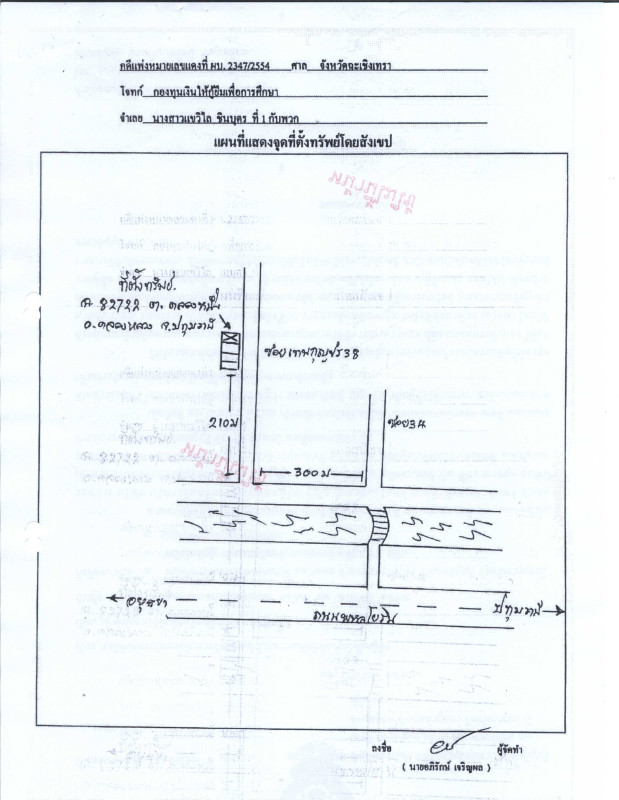 คดีแพ่งหมายเลขแดงที่ ผบ. 2347/2554 ศาล จังหวัดฉะเชิงเทรา
โจทก์ กองทุนเงินให้กู้ยืมเพื่อการศึกษา
จำเลย นางสาวแขวิไล ชินบุตร ที่ 1 กับพวก
แผนที่แสดงจุดที่ตั้งทรัพย์โดยสังเขป
ที่ตั้งทรัพย์.
ด. 82722 ต. คลองหนึ่ง
อ.คลองหลวง จ.ปทุมธานี
ซอยเทพกุญชร 38
210 ม
ซอย 34
300 ม
อยุธยา
ปทุมธานี
ถนนพหลโยธิน
ลงชื่อ ผู้จัดทำ
( นายอภิรักษ์ เจริญผล )